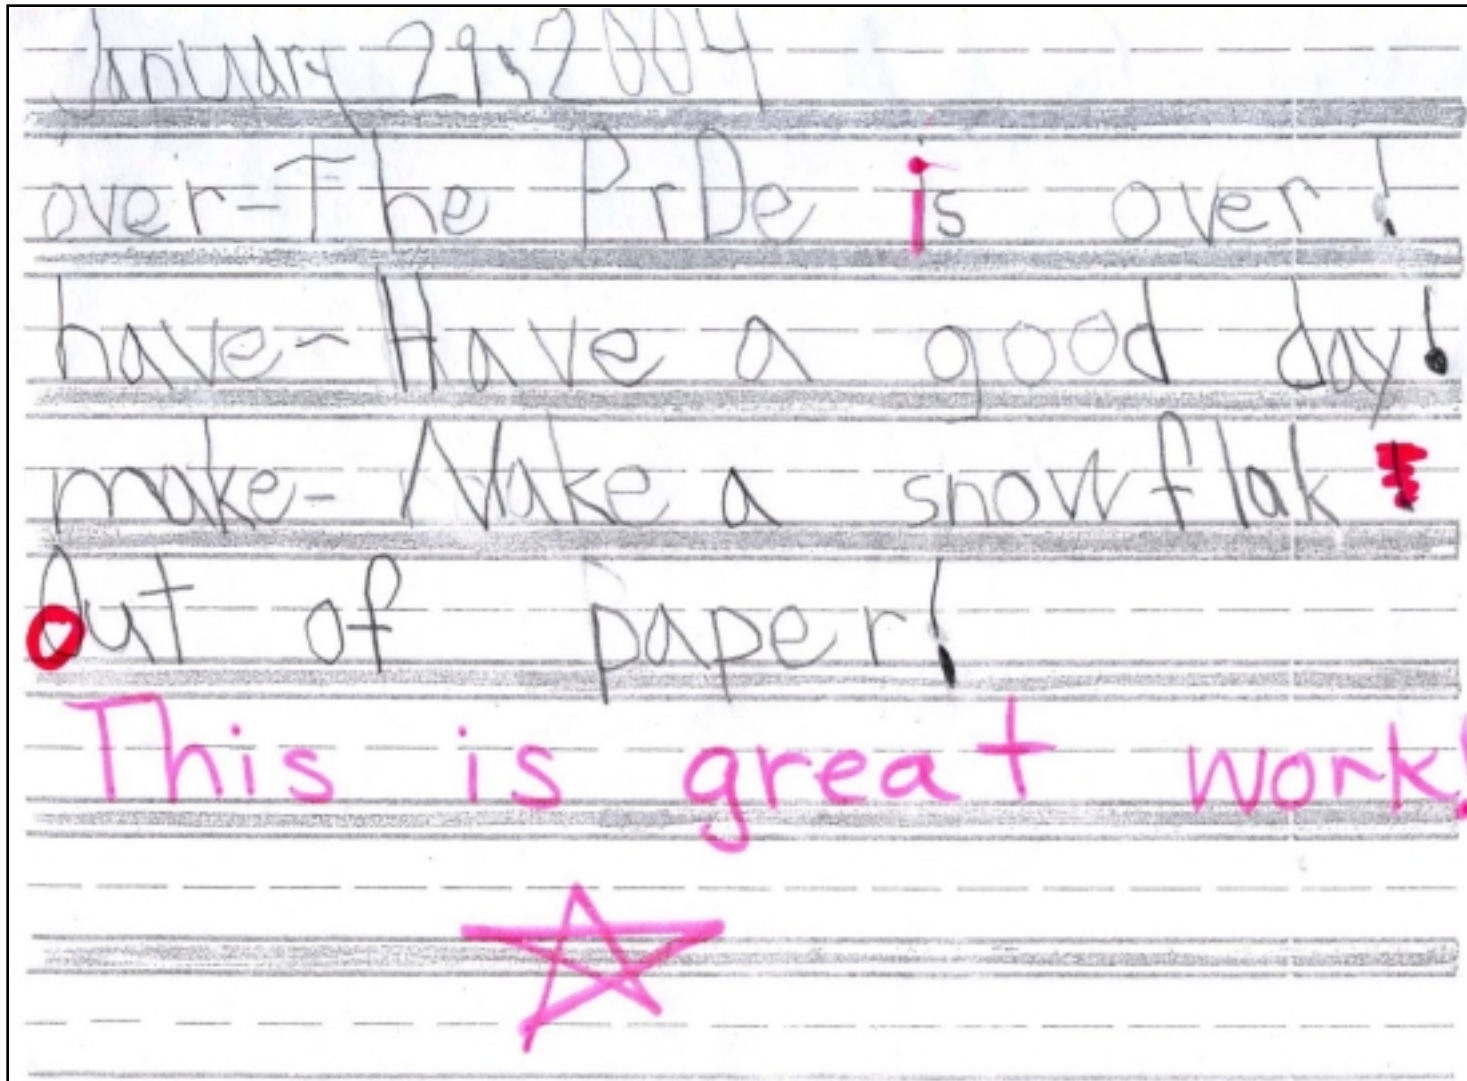 January 29, 2004
over-The PrDe is over!
have-Have a good day!
make-Make a snowflak
Out of paper!
This is great work!